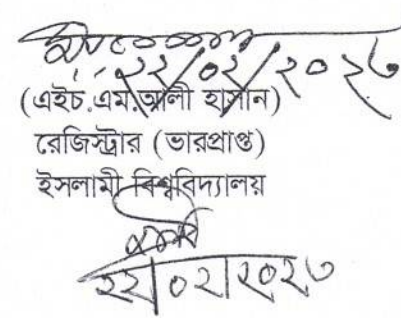 ২২/০২/২০২৩
(এইচ.এম.আলী হাসান)
রেজিস্ট্রার (ভারপ্রাপ্ত)
ইসলামী বিশ্ববিদ্যালয়
২২/০২/২০২৩